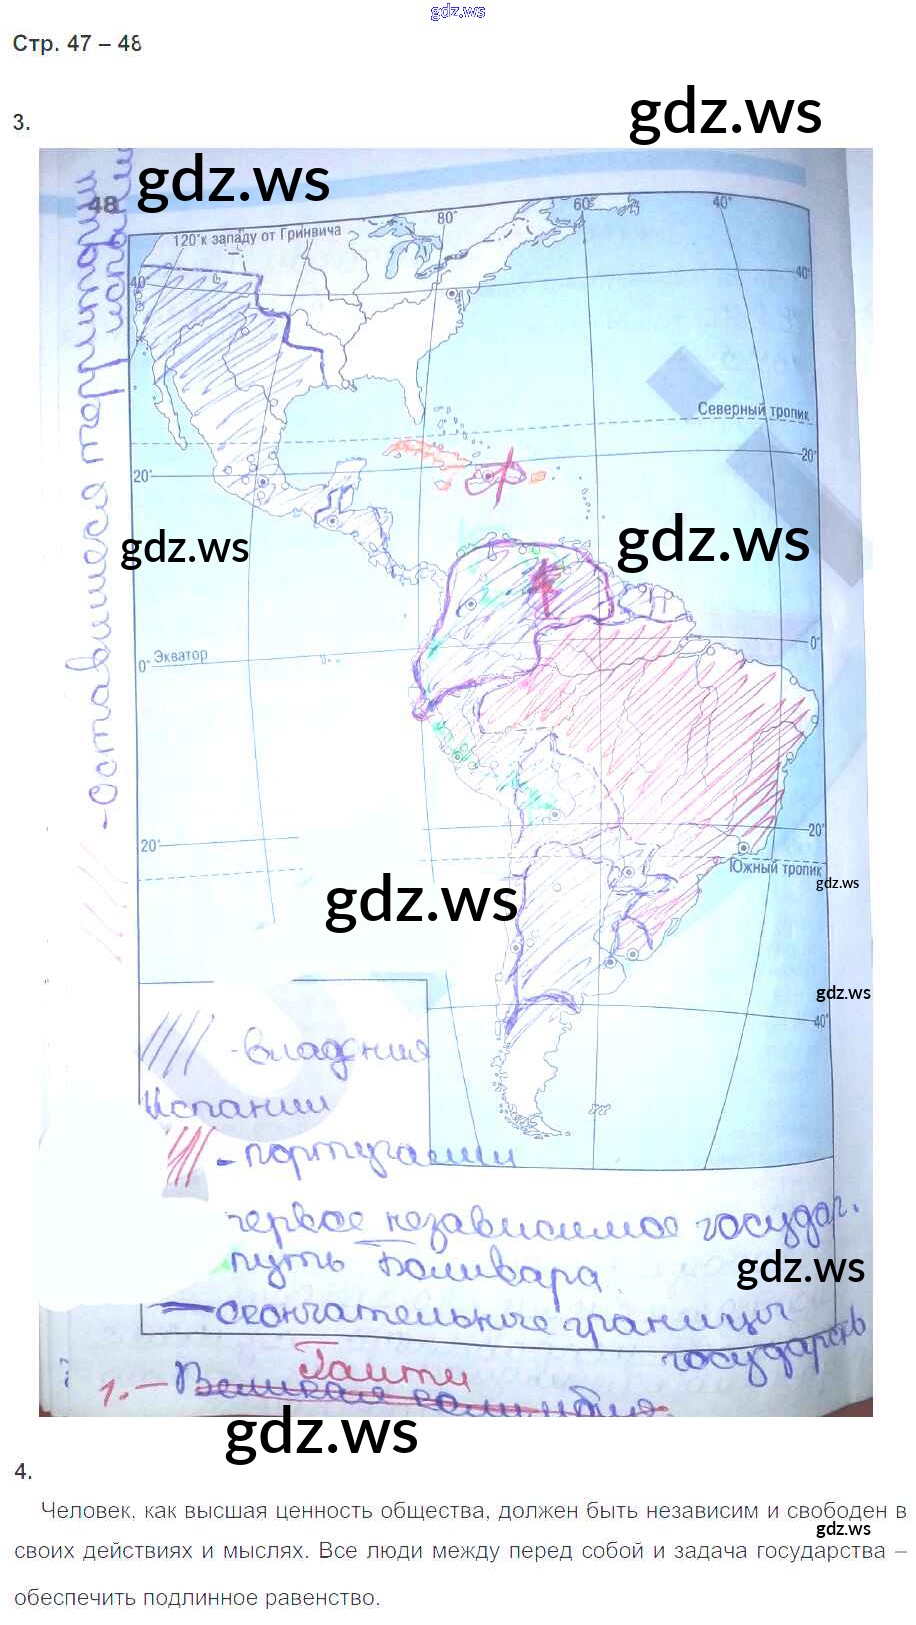 gdz.ws
Стр. 47 – 48
gdz.ws
3.
gdz.ws
48
120°к западу от Гринвича
80°
60°
40°
40°
40°
Северный тропик
20°
20°
gdz.ws
gdz.ws
- Оставшиеся территории
испании
0°
Экватор
0°
20°
20°
Южный тропик
gdz.ws
gdz.ws
gdz.ws
40°
- владения
Испании
- португалии
первое независимое государ.
путь Боливара
gdz.ws
— окончательные границы
государств
Гаити
1. – Великая колумбия.
gdz.ws
4.
Человек, как высшая ценность общества, должен быть независим и свободен в
gdz.ws
своих действиях и мыслях. Все люди между перед собой и задача государства –
обеспечить подлинное равенство.